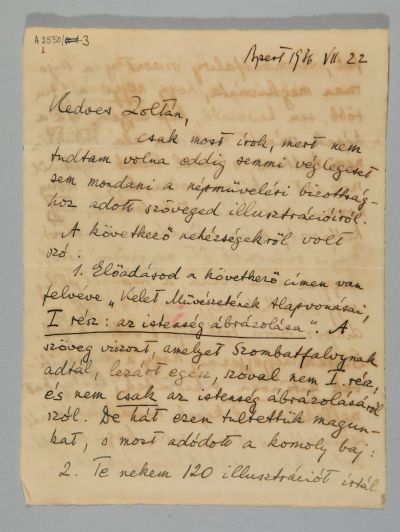 A 2550/ 3
1
Bpest 1936 VII. 22
Kedves Zoltán,
csak most írok, mert nem
tudtam volna eddig semmi véglegeset
sem mondani a népművelési bizottság-
hoz adott szöveged illusztrációiról.
A következő nehézségekről volt
szó:
1. Előadásod a következő címen van
felvéve „Kelet Művészetének Alapvonásai,
I rész: az istenség ábrázolása". A
szöveg viszont, amelyet Szombatfalvynak
adtál, lezárt egész, szóval nem I. rész,
és nem csak az istenség ábrázolásáról
szól. De hát ezen túltettük magun-
kat, s most adódott a komoly baj:
2. Te nekem 120 illusztrációt írtál